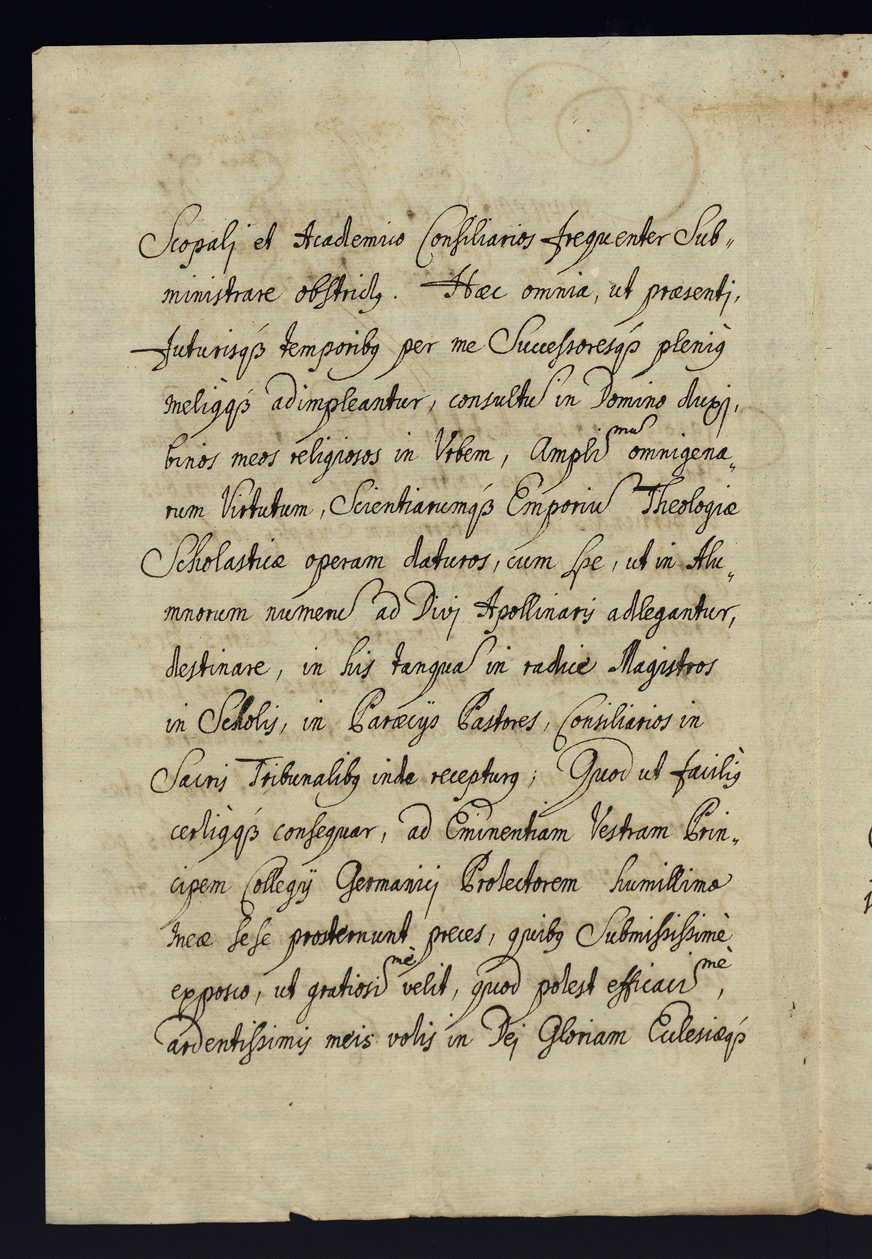 Scopalj et Academico Consiliarios frequenter Sub„
ministrare obstrictꝰ. Hæc omnia, ut præsentj,
futurisqꝫ temporibꝰ per me Successoresqꝫ pleniꝰ
meliꝰqꝫ adimpleantur, consultū in Domino duxj,
binos meos religiosos in Vrbem, Ampliss̅ᵐᵘ̅ omnigena„
rum Virtutum, Scientiarumqꝫ Emporiū Theologiæ
Scholasticæ operam daturos, cum spe, ut in Alu„
mnorum numerū ad Divj Apollinaris adlegantur,
destinare, in his tanquā in radice Magistros
in Scholis, in Paræcijs Pastores, Consiliarios in
Sacris Tribunalibꝰ inde recepturꝰ; Quod ut faciliꝰ
certiꝰqꝫ consequar, ad Eminentiam Vestram Prin„
cipem Collegij Germanicj Protectorem humillimæ
meæ sese prosternunt preces, quibꝰ Submississimè
exposco, ut gratiosiᵐè velit, quod potest efficaciᵐè,
ardentissimis meis votis in Dej Gloriam Ecclesiæqꝫ